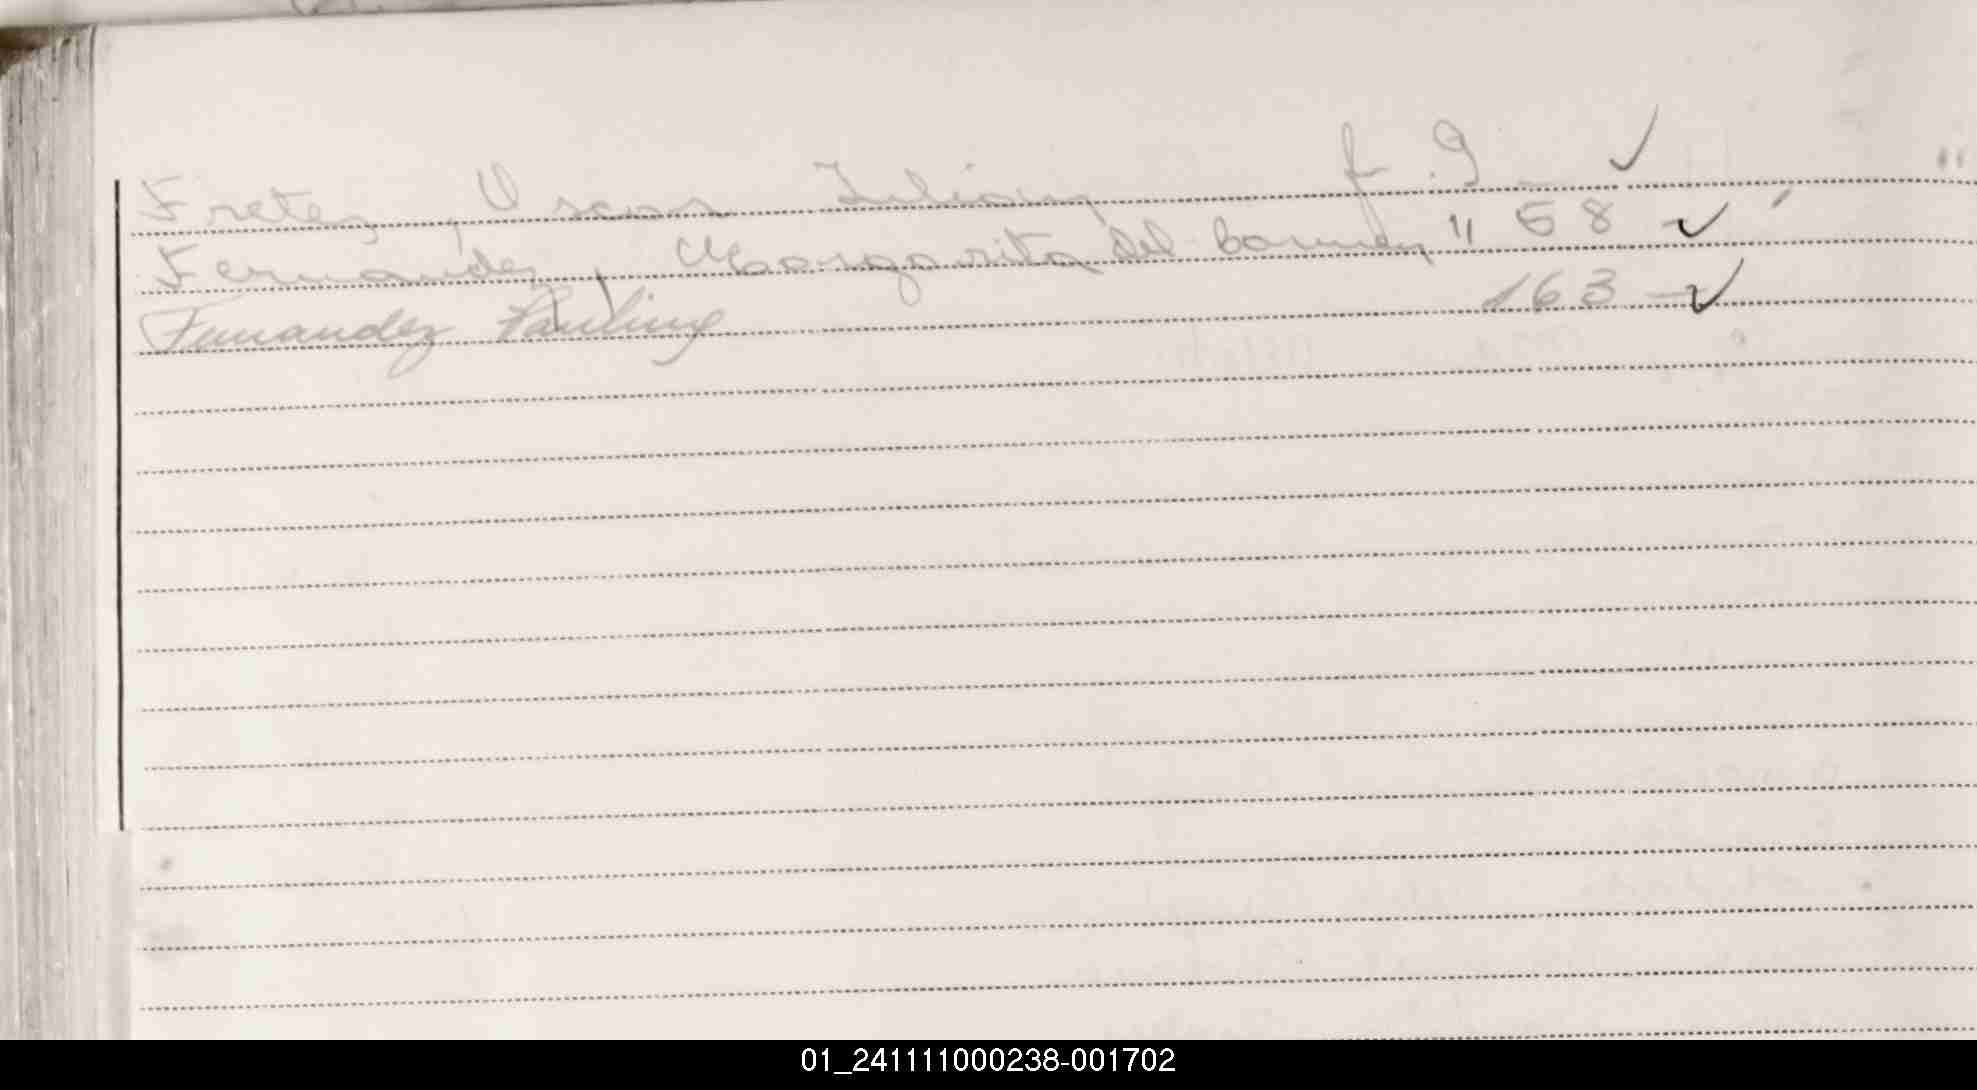 Fretez, Oscar Julian f. 9 - ✓ "
Fernandez, Margarita del Carmen " 58 - ✓
Fernandez Paulino 163 - ✓
01_241111000238-001702